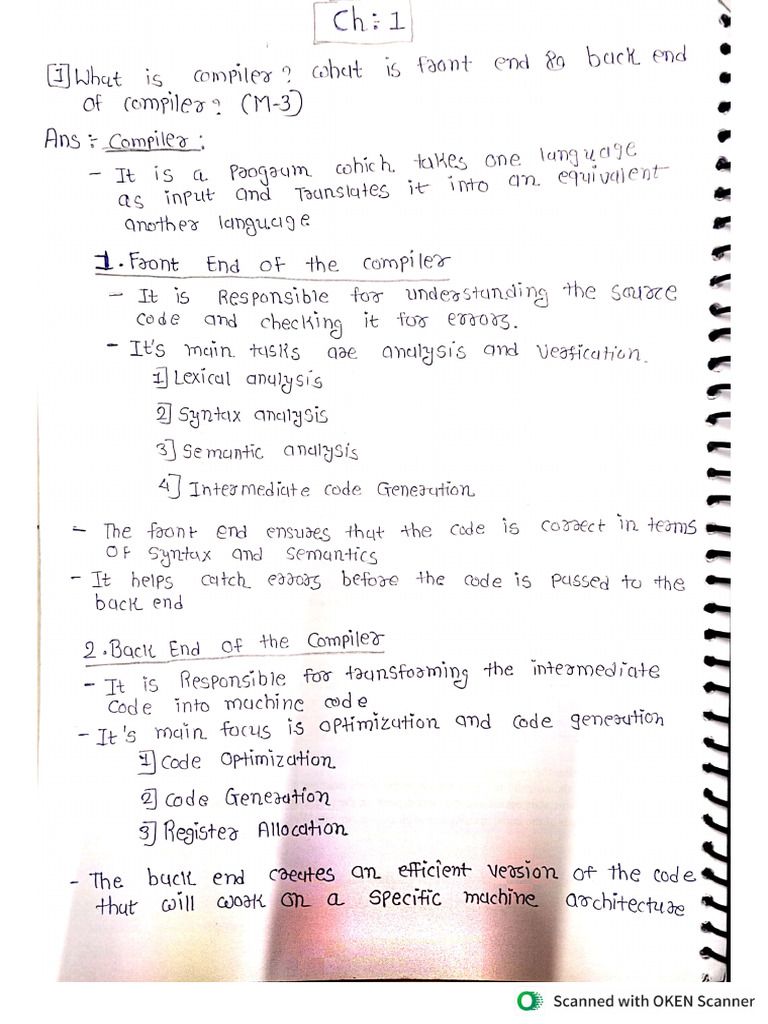 Ch : 1
1 What is compiler? What is front end & back end
of compiler? (M-3)
Ans :- Compiler :
- It is a program which takes one language
as input and Translates it into an equivalent
another language
1. Front End of the compiler
- It is Responsible for understanding the source
code and checking it for errors.
- It's main tasks are analysis and verfication.
1] Lexical analysis
2] Syntax analysis
3] Semantic analysis
4] Intermediate code Generation
- The front end ensures that the code is correct in terms
of syntax and semantics
- It helps catch errors before the code is passed to the
back end
2. Back End of the Compiler
- It is Responsible for transforming the intermediate
code into machine code
- It's main focus is optimization and code generation
1] Code Optimization
2] Code Generation
3] Register Allocation
- The back end creates an efficient version of the code
that will work on a specific machine architecture
Scanned with OKEN Scanner